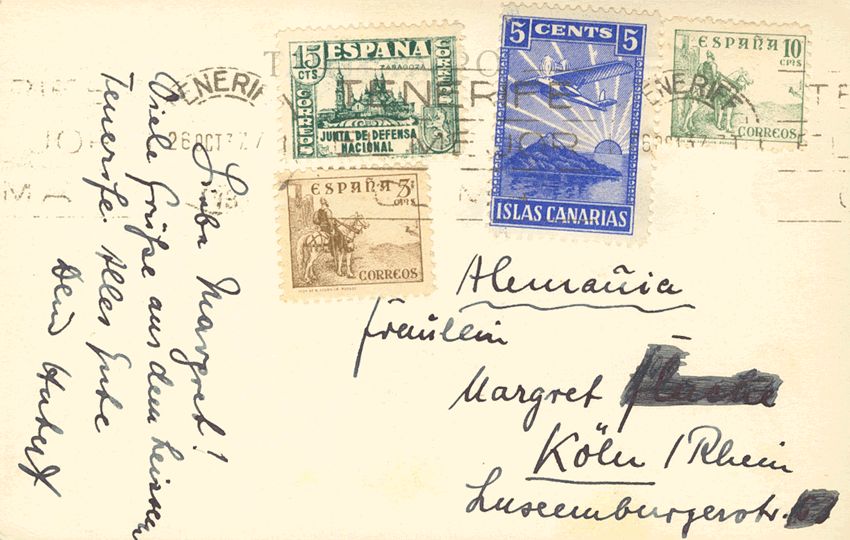 15 ESPAÑA
CTS
ZARAGOZA
CORREOS
CORREOS
JUNTA DE DEFENSA
NACIONAL
5 CENTS 5
ISLAS CANARIAS
ESPAÑA 10
CTS
CORREOS
ESPAÑA 5
CTS
CORREOS
TENERIFE
26 OCT 37
TENERIFE
MEJOR
TENERIFE
Liebe Margret!
Viele Grüße aus dem heissen
Tenerife. Alles Gute
Dein Hubert
Alemañia
Fräulein
Margret
Köln / Rhein
Luxemburgerstr.